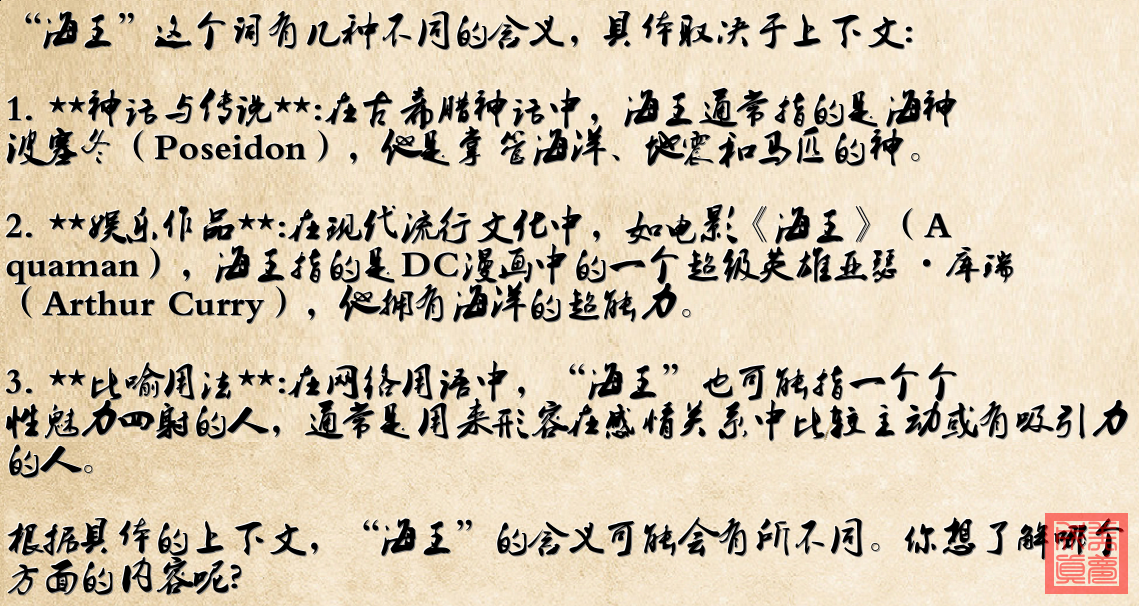 “海王”这个词有几种不同的含义，具体取决于上下文:
1. **神话与传说**:在古希腊神话中，海王通常指的是海神
波塞冬（Poseidon），他是掌管海洋、地震和马匹的神。
2. **娱乐作品**:在现代流行文化中，如电影《海王》（A
quaman），海王指的是DC漫画中的一个超级英雄亚瑟·库瑞
（Arthur Curry），他拥有海洋的超能力。
3. **比喻用法**:在网络用语中，“海王”也可能指一个个
性魅力四射的人，通常是用来形容在感情关系中比较主动或有吸引力
的人。
根据具体的上下文，“海王”的含义可能会有所不同。你想了解哪个
方面的内容呢?